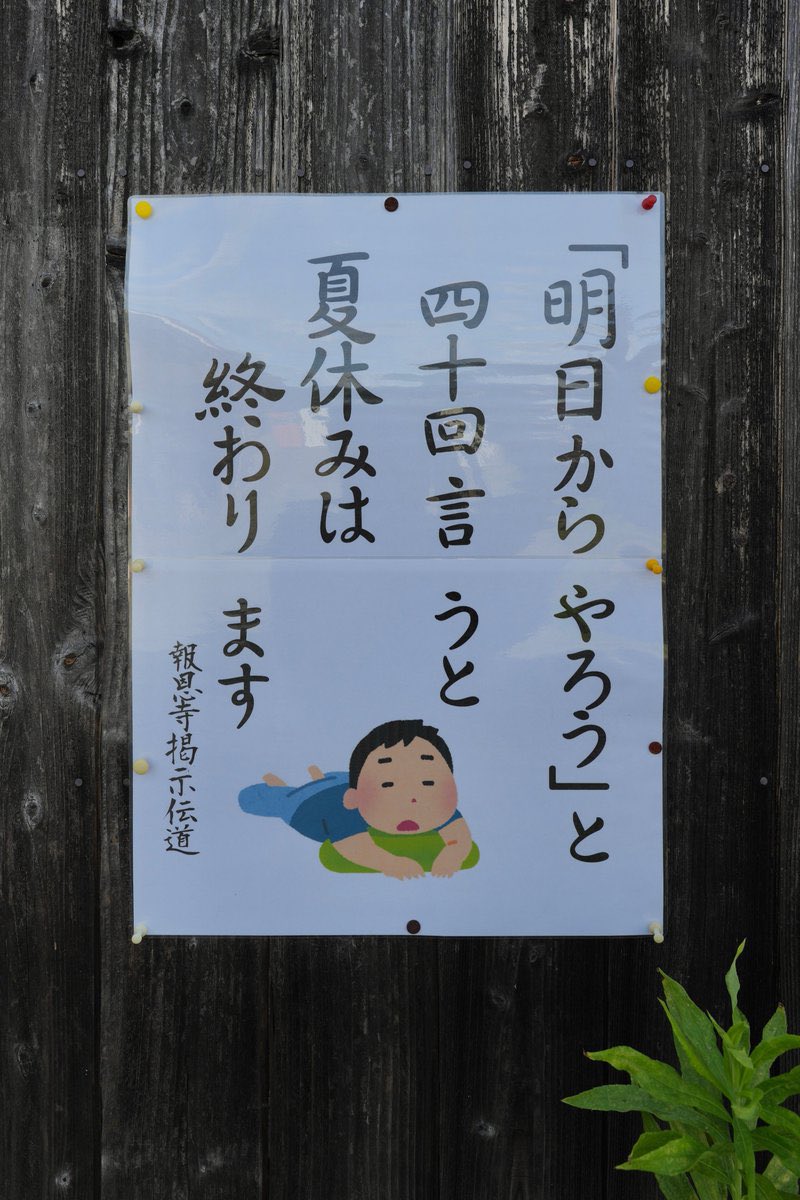 「明日からやろう」と
四十回言うと
夏休みは
終わります
報恩寺掲示伝道